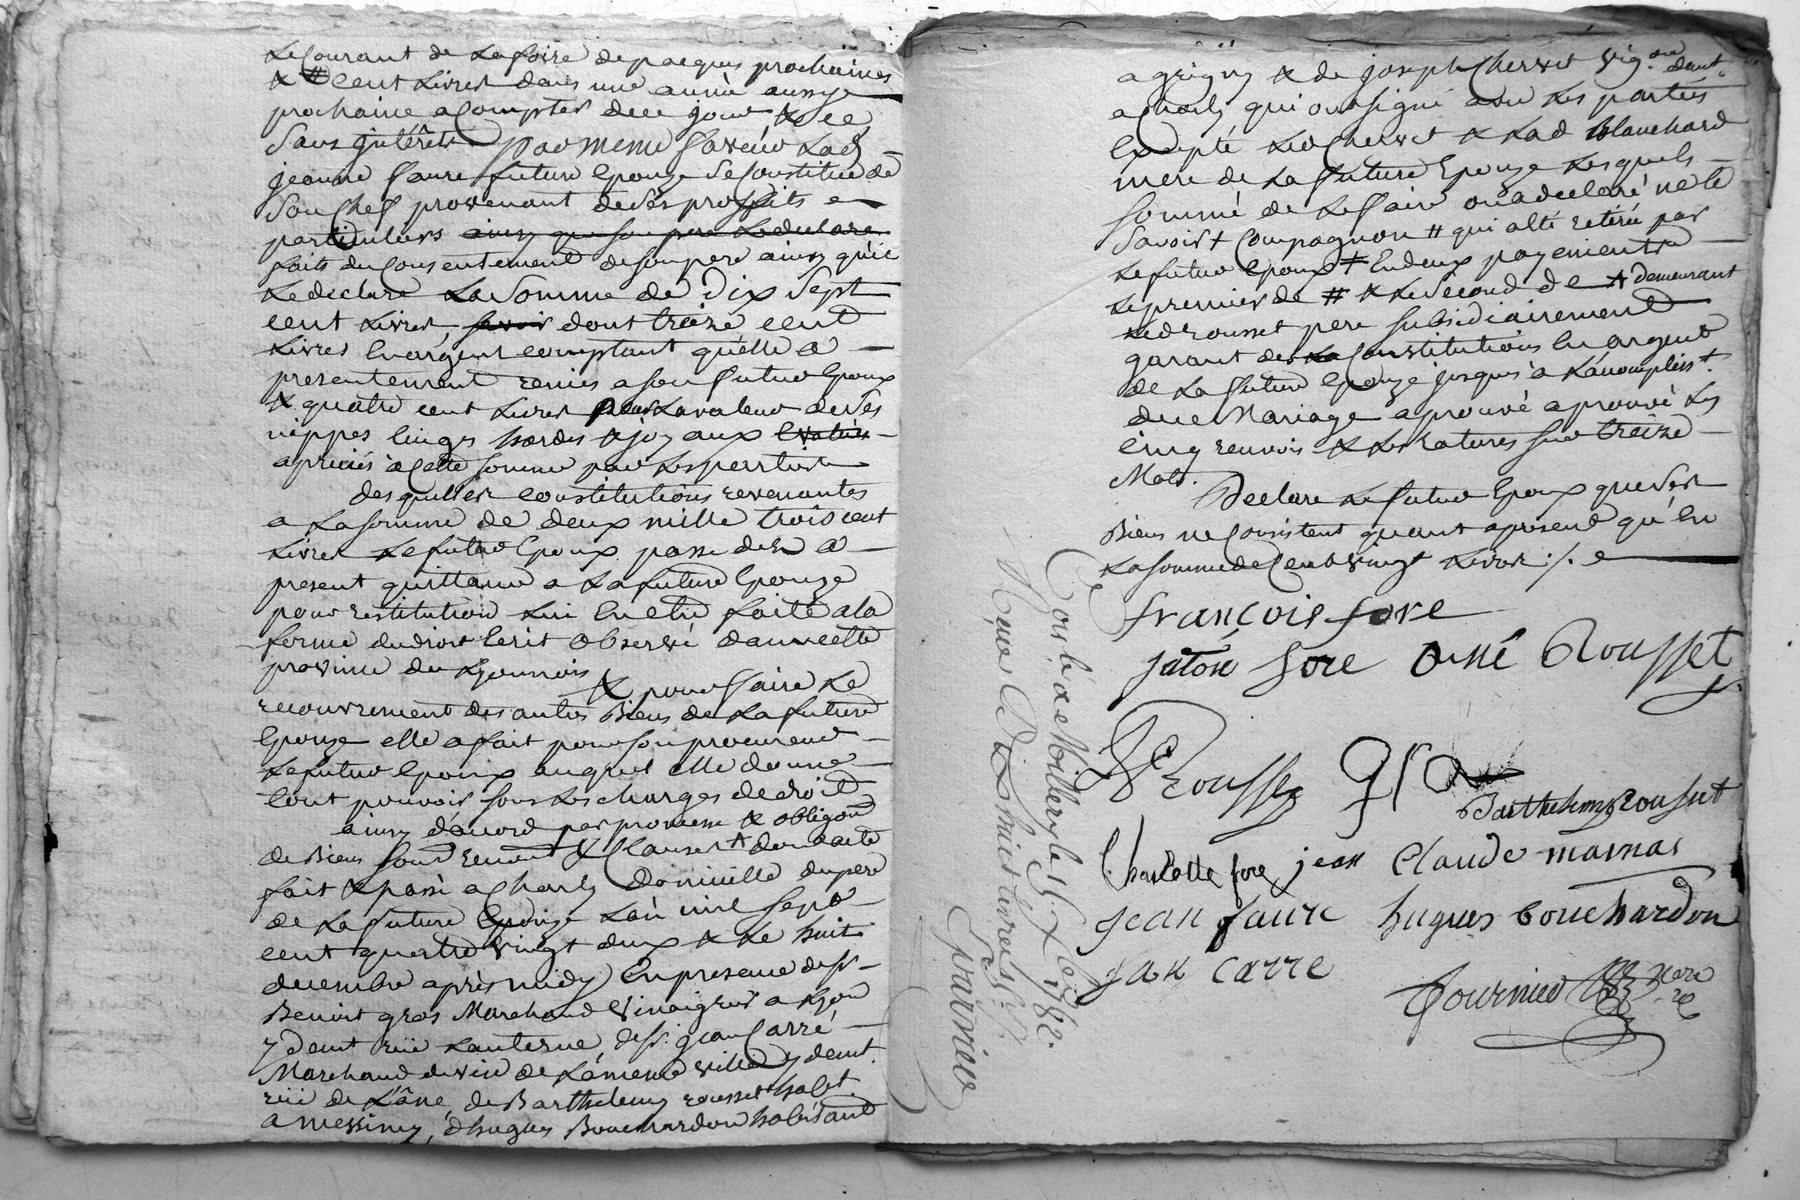 Le Courant de La foire de paques prochaines
& # Cent Livres dans une année aussy
prochaine a Compter de ce jour & ce
Sans jntérêts par meme faveur Lad.
jeanne faure future Epouze Se Constitue de
Son Chef provenant de Ses proffits
particuliers ainsy que son pere Le declare
faits du Consentement de son pere ainsy qu'il
Le declare La Somme de Dix Sept
cent Livres savoir dont treize cent
Livres En argent comptant qu'elle a
presentement remis a son futur Epoux
& quatre cent Livres pour La valeur de Ses
nippes linges hardes & joyaux Evalués
apreciés a Cette somme par Les parties
desquelles constitutions revenantes
a La somme de deux mille trois cent
Livres Le futur Epoux passe des a
present quittance a La future Epouze
pour restitution Lui En etre faite a la
forme du droit Ecrit Observé dans cette
province du Lyonnois
& pour faire Le
recouvrement des autres Biens de La future
Epouze elle a fait pour son procureur
Le futur Epoux auquel elle donne
tout pouvoir sous Les charges de droit
ainsy d'acord par promesse & obligaon
de Biens Soum. renont. & Clauses + dont acte
fait & passé a Charly Domicille du pere
de La future Epouze L'an mil sept
cent quatre vingt deux & Le huit
decembre après midy En presence de sr
Benoit gros Marchand Vinaigrier a Lyon
y demt ruë Lanterne, de sr. jean Carré
Marchand de vin de La meme ville y demt.
ruë de L'âne, de Barthelemy rousset habt
a messimy, d'hugues Bouchardon habitant
a grigny & de joseph Chervet Vig.on demt.
a Charly, qui ont signé avec Les parties
Excepté Led Chervet & Lad Blanchard
mere de La future Epouze Lesquels
sommé de Le faire ont declaré ne le
Savoir + Compagnon # qui a été retiré par
Le futur Epoux + En deux payements
Le premier de # & Le Second de + demeurant
Led rousset pere subsidiairement
garant des La Constitutions En argent
de La future Epouze jusques a L'acompliss.t
du ce Mariage aprouvé aprouvé Les
cinq renvois & Les ratures sur treize
Mots.
Declare Le futur Epoux que Ses
Biens ne Consistent quant a present qu'En
La somme de Cent Vingt Livres ./.
françois fore
fore Rousset
Rousset
Barthelemy Rousset
Charlotte fore jean Claude mamas
jean faure hugues bouchardon
jan carre
fournier
Con.lé a Millery le 15. Xbre 1782.
Reçu Dix huit livres